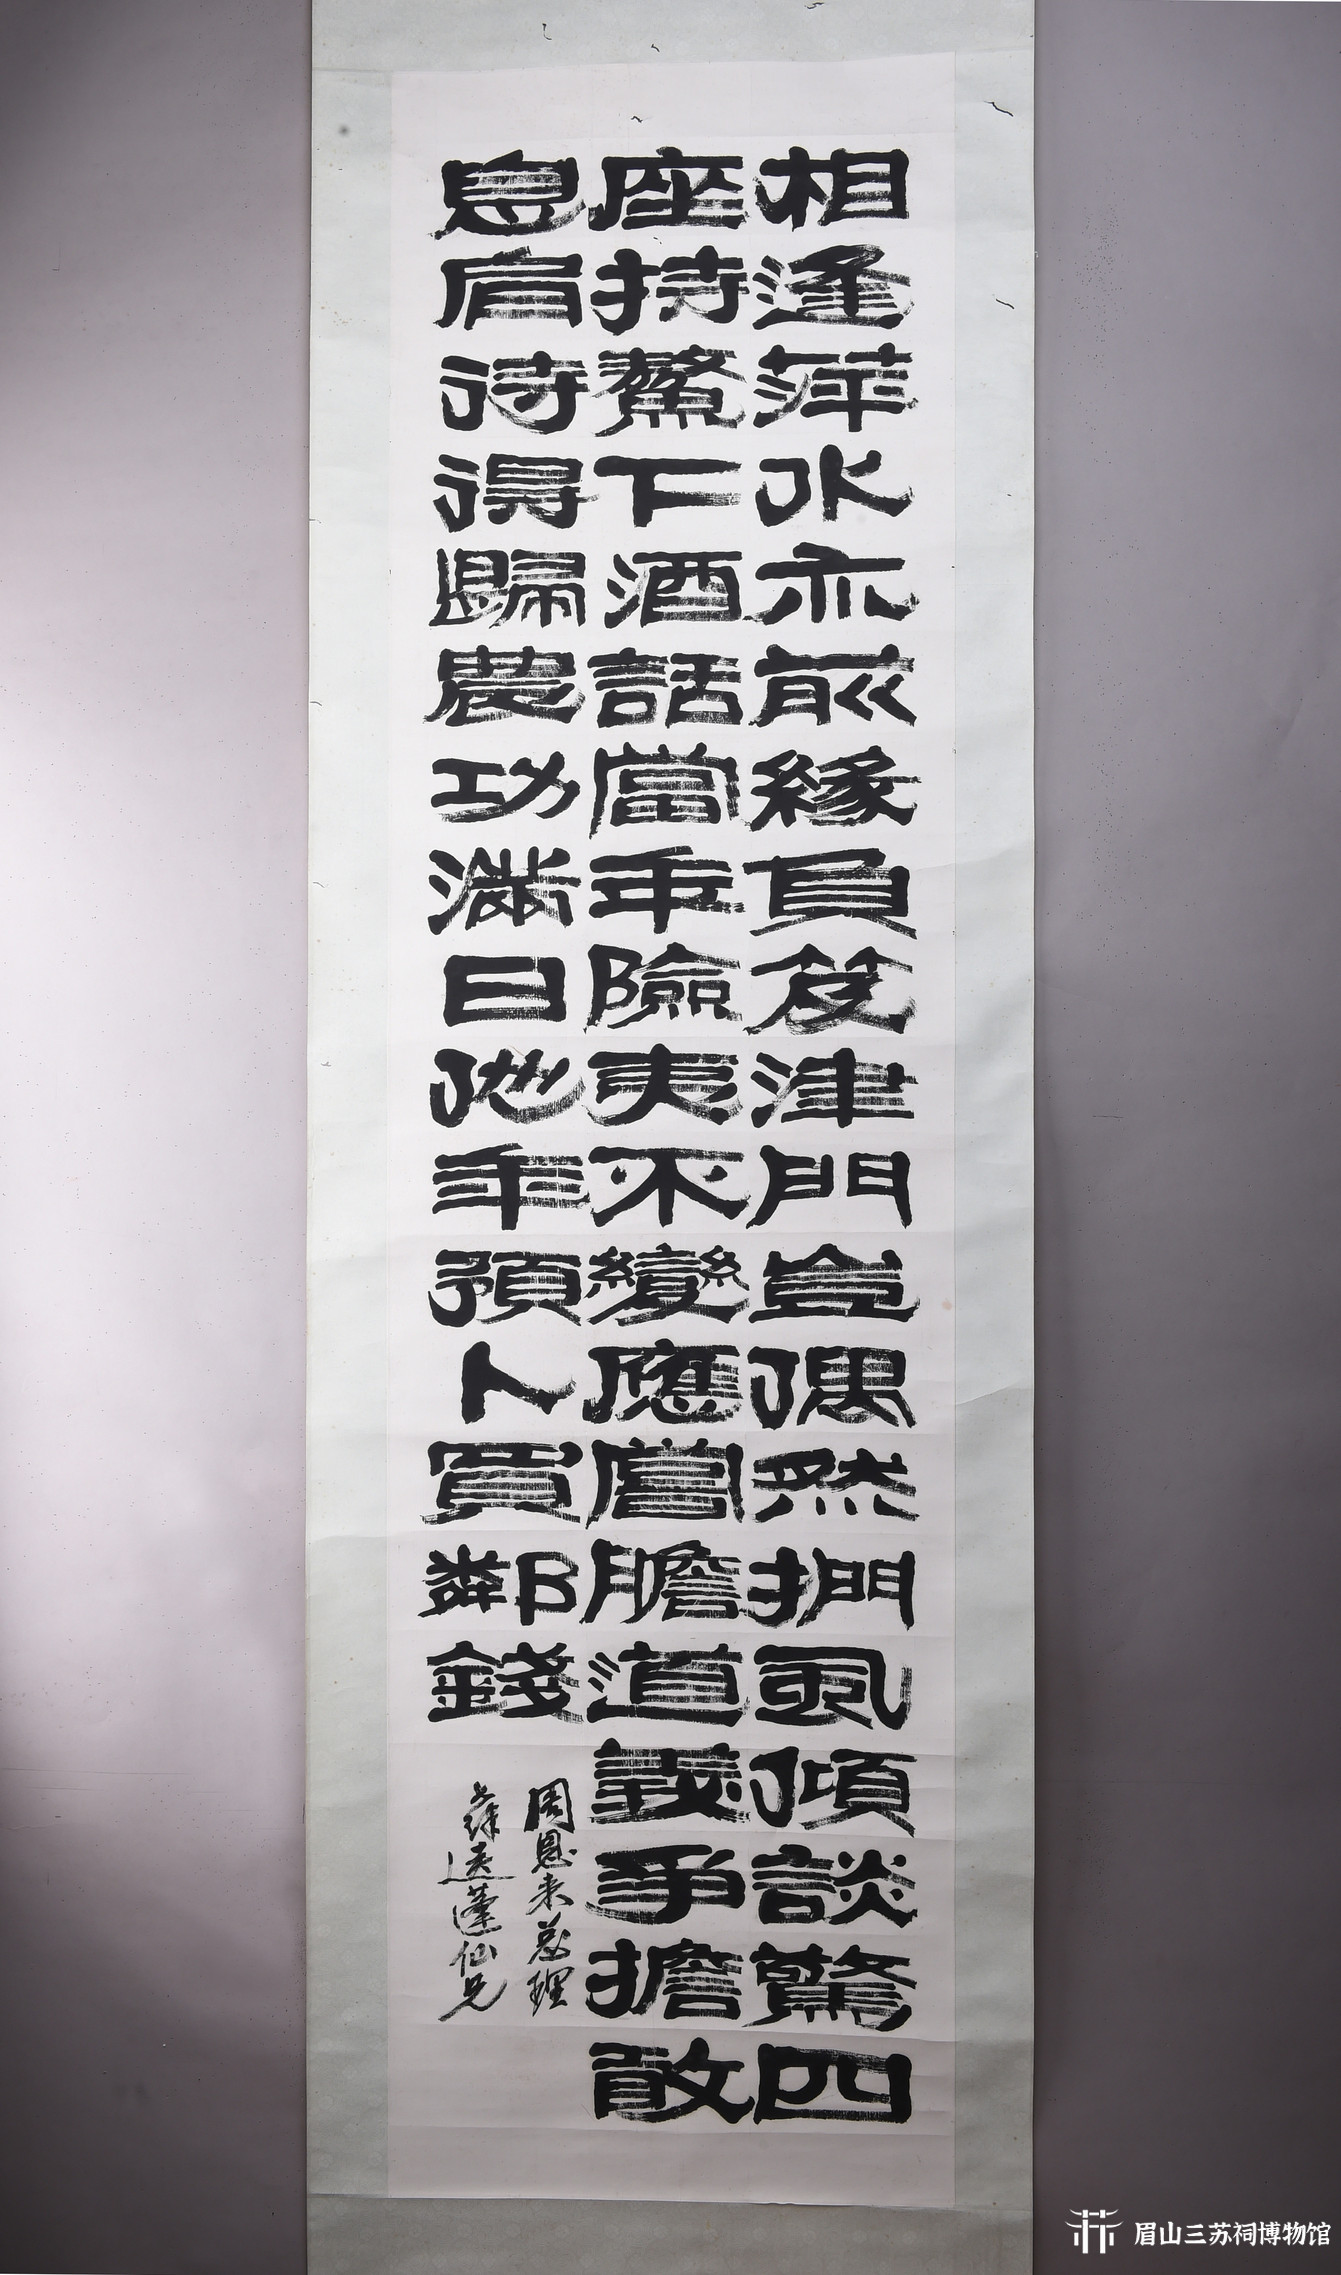 相逢萍水亦前緣負笈津門豈偶然捫虱傾談驚四
座持鰲下酒話當年險夷不變應嘗膽道義爭擔敢
息肩待得歸農功滿日他年預卜買鄰錢
周恩来总理
送蓬仙兄
眉山三苏祠博物馆